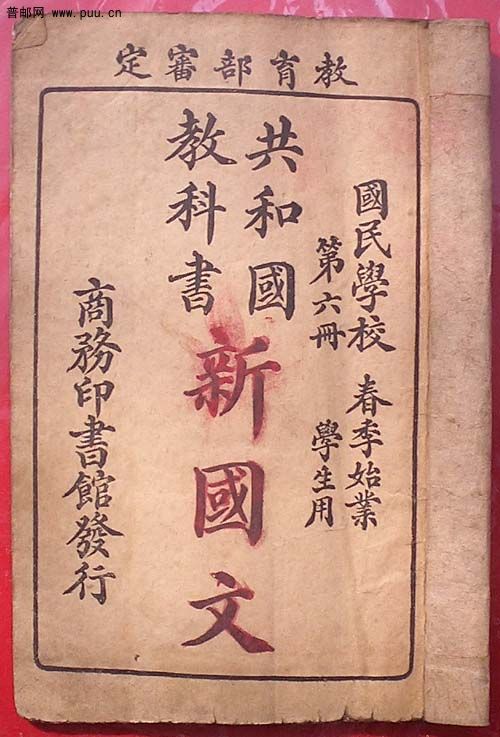 普邮网 www.puu.cn
教育部審定
國民學校 春季始業
第六冊 學生用
共和國
教科書
新國文
商務印書館發行